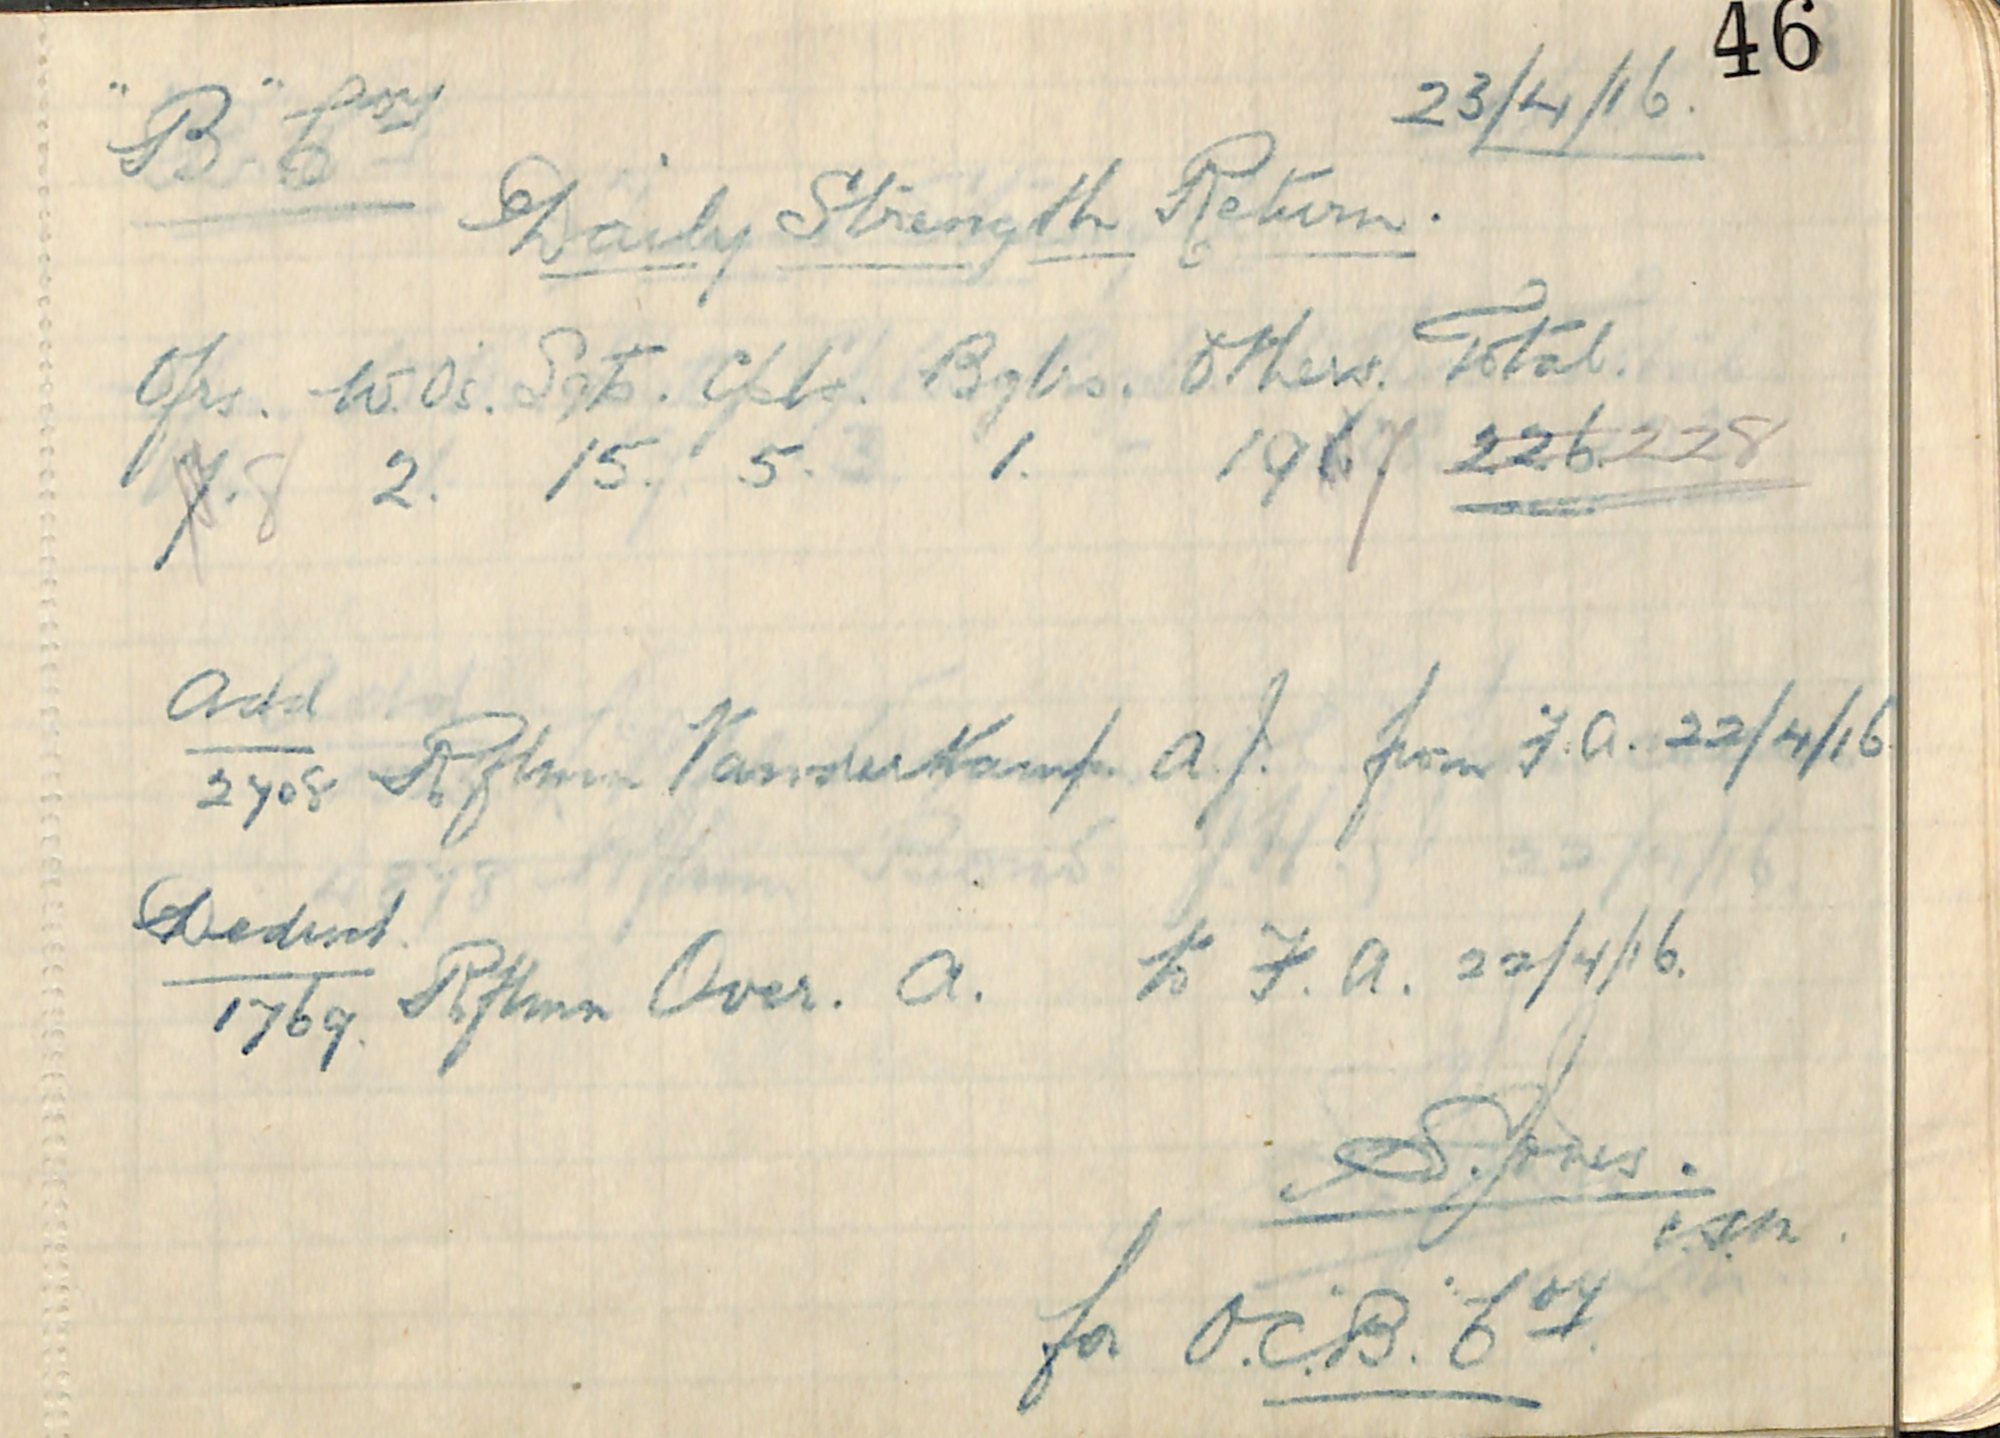 46
"B" Coy
23/4/16.
Daily Strength Return.
Ofrs. W.Os. Sgts. Cpls. Bglrs. Others. Total.
7. 8 2. 15. 5. 1. 196 7 226 228
Add
2708 Rflmn VanderKamp A.J. from F.A. 22/4/16.
Deduct.
1769. Rflmn Over. A. to F.A. 22/4/16.
S. Jones.
C.S.M.
for O.C. "B" Coy.